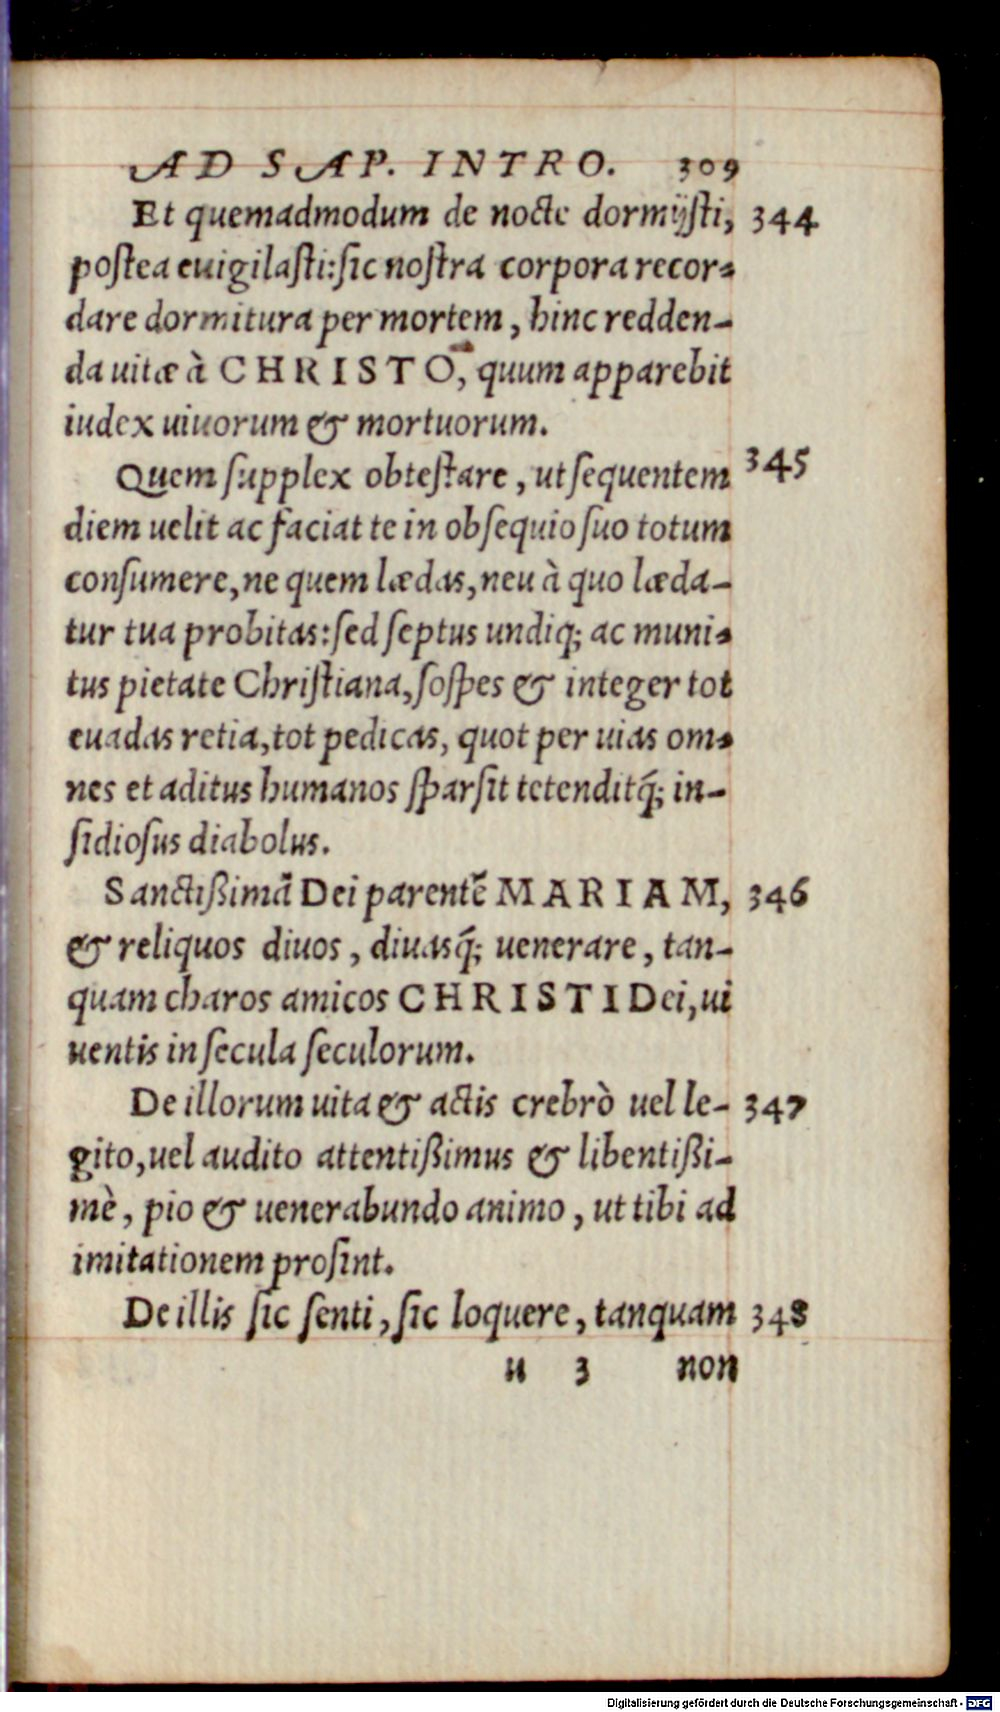 AD SAP. INTRO. 309
Et quemadmodum de nocte dormijſti, 344
poſtea euigilaſti:ſic noſtra corpora recor-
dare dormitura per mortem, hinc redden-
da uitæ à CHRISTO, quum apparebit
iudex uiuorum & mortuorum.
Quem ſupplex obteſtare, ut ſequentem 345
diem uelit ac faciat te in obſequio ſuo totum
conſumere, ne quem lædas, neu à quo læda-
tur tua probitas: ſed ſeptus undiq; ac muni-
tus pietate Chriſtiana, ſoſpes & integer tot
euadas retia, tot pedicas, quot per uias om-
nes et aditus humanos ſparſit tetenditq́; in-
ſidioſus diabolus.
Sanctißimā Dei parentē MARIAM, 346
& reliquos diuos, diuasq́; uenerare, tan-
quam charos amicos CHRISTI Dei, ui
uentis in ſecula ſeculorum.
De illorum uita & actis crebrò uel le- 347
gito, uel audito attentißimus & libentißi-
mè, pio & uenerabundo animo, ut tibi ad
imitationem proſint.
De illis ſic ſenti, ſic loquere, tanquam 348
u 3 non
Digitalisierung gefördert durch die Deutsche Forschungsgemeinschaft - DFG